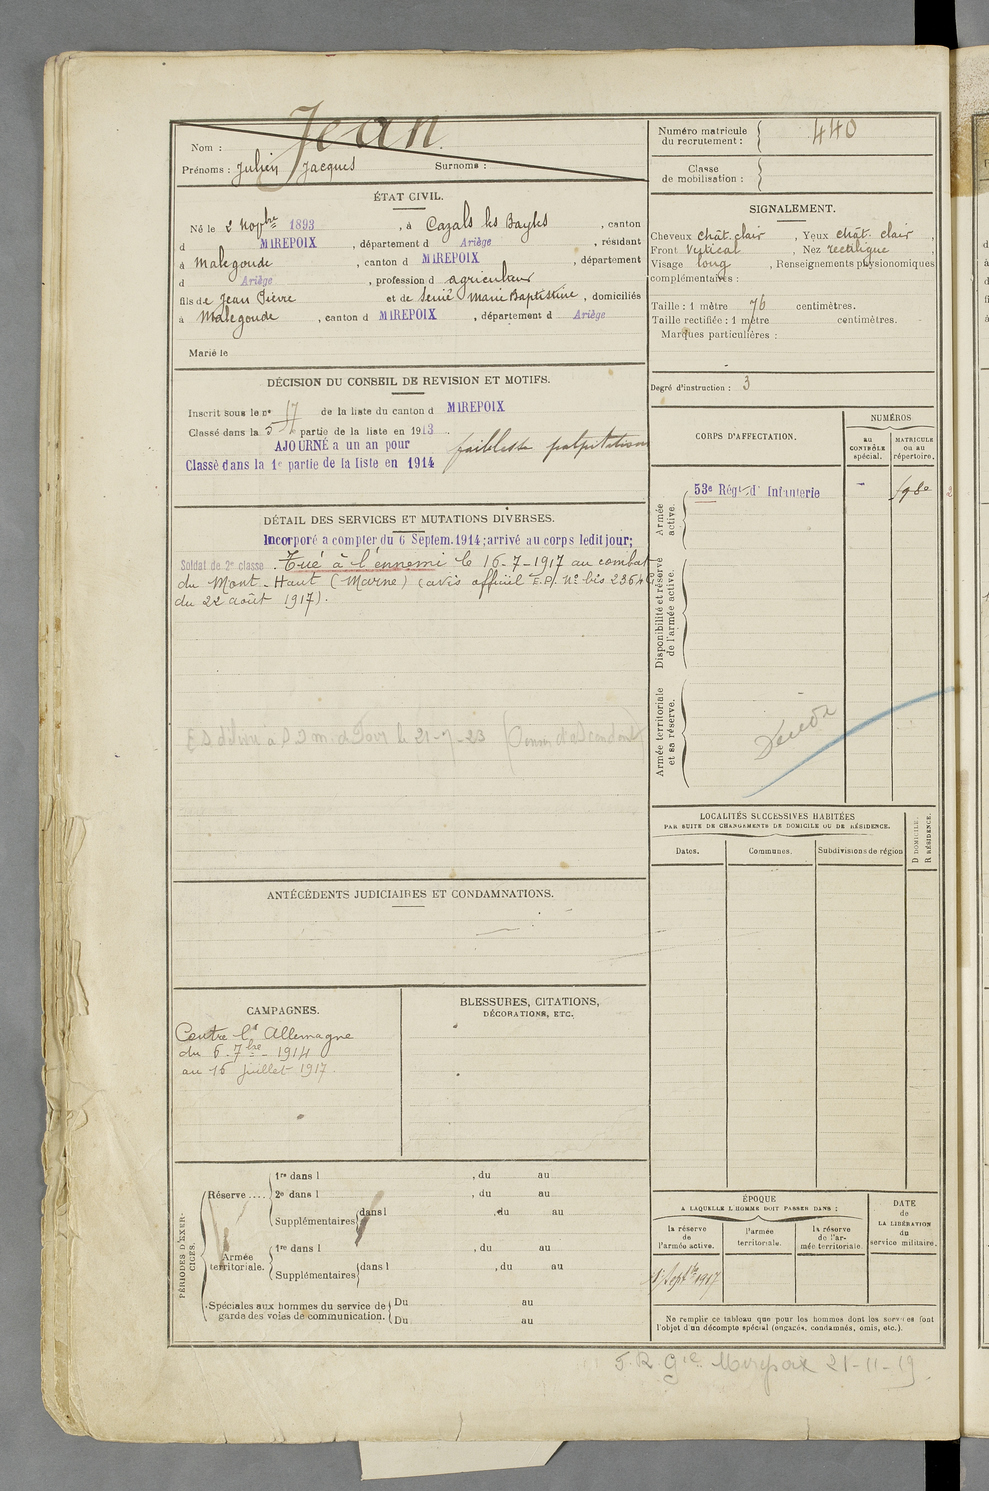 Jean
Nom :
Prénoms : Julien Jacques Surnoms :
Numéro matricule
du recrutement : 440
Classe
de mobilisation :
ÉTAT CIVIL.
Né le 2 Novbre 1893, à Cazals des Baylès, canton
d MIREPOIX, département d Ariège, résidant
à Malegoude, canton d MIREPOIX, département
d Ariège, profession d agriculteur
fils de Jean Pierre et de Marie Baptistine, domiciliés
à Malegoude, canton d MIREPOIX, département d Ariège
Marié le
SIGNALEMENT.
Cheveux chât. clair, Yeux chât. clair,
Front Vertical, Nez rectiligne,
Visage long, Renseignements physionomiques
complémentaires :
Taille : 1 mètre 76 centimètres.
Taille rectifiée : 1 mètre centimètres.
Marques particulières :
Degré d'instruction : 3
DÉCISION DU CONSEIL DE REVISION ET MOTIFS.
Inscrit sous le n° 17 de la liste du canton d MIREPOIX
Classé dans la 5e partie de la liste en 1913.
AJOURNÉ a un an pour faiblesse palpitations
Classé dans la 1e partie de la liste en 1914
CORPS D'AFFECTATION.
NUMÉROS
au
CONTRÔLE
spécial.
MATRICULE
ou au
répertoire.
Armée
active.
53e Régt d' Infanterie
Disponibilité et réserve
de l'armée active.
Armée territoriale
et sa réserve.
DÉTAIL DES SERVICES ET MUTATIONS DIVERSES.
Incorporé a compter du 6 Septem. 1914; arrivé au corps ledit jour;
Soldat de 2e classe. Tué à l'ennemi le 16-7-1917 au combat
du Mont-Haut (Marne) (avis officiel E.P. N° bis 2364
du 22 août 1917).
le 21-7-23
LOCALITÉS SUCCESSIVES HABITÉES
PAR SUITE DE CHANGEMENTS DE DOMICILE OU DE RÉSIDENCE.
Dates.
Communes.
Subdivisions de région
D DOMICILE.
R RÉSIDENCE.
ANTÉCÉDENTS JUDICIAIRES ET CONDAMNATIONS.
CAMPAGNES.
Contre l'Allemagne
du 6-7bre-1914
au 16 juillet 1917.
BLESSURES, CITATIONS,
DÉCORATIONS, ETC.
PÉRIODES D'EXER-
CICES.
Réserve....
1re dans l , du au
2e dans l , du au
Supplémentaires dans l , du au
Armée
territoriale.
1re dans l , du au
Supplémentaires dans l , du au
Spéciales aux hommes du service de
garde des voies de communication.
Du au
Du au
ÉPOQUE
A LAQUELLE L'HOMME DOIT PASSER DANS :
la réserve
de
l'armée active.
l'armée
territoriale.
la réserve
de l'ar-
mée territoriale.
DATE
de
LA LIBÉRATION
du
service militaire.
1r Septbre 1917
Ne remplir ce tableau que pour les hommes dont les services font
l'objet d'un décompte spécial (engagés, condamnés, omis, etc.).
F.R. Gie Mirepoix 21-11-19.